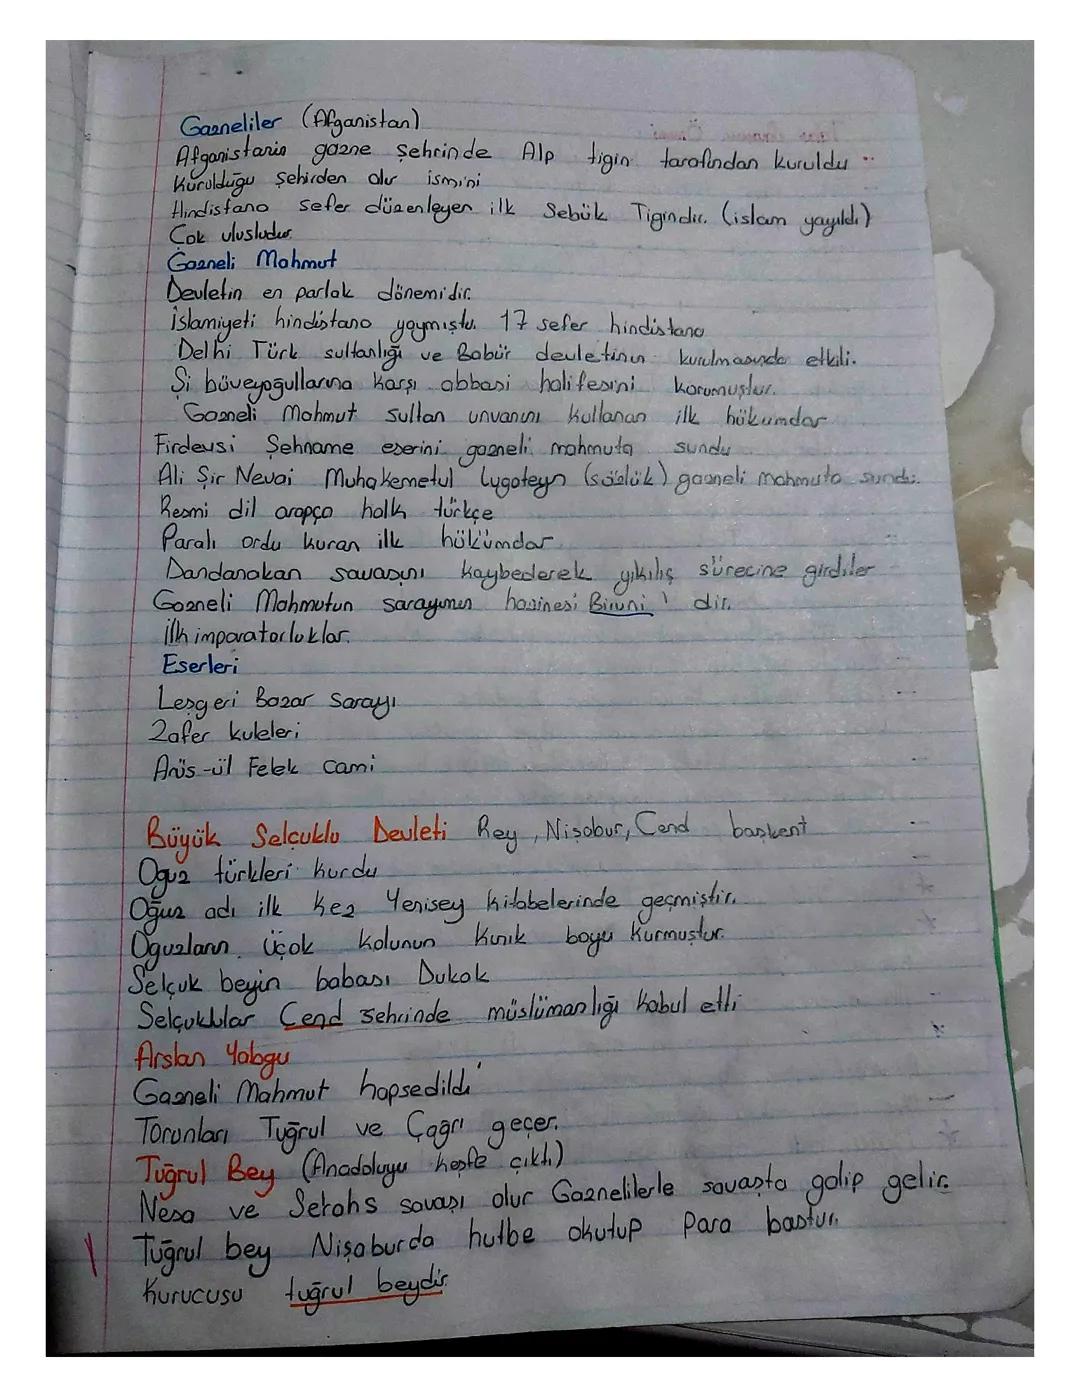 Gazneliler (Afganistan)
Afganistanın gazne şehrinde Alp tigin tarafından kuruldu
Kurulduğu şehirden alır ismini
Hindistana sefer düzenleyen ilk Sebük Tigindir. (islam yayıldı)
Çok ulusludur.
Gazneli Mahmut
Devletin en parlak dönemidir.
İslamiyeti hindistana yaymıştır. 17 sefer hindistana
Delhi Türk sultanlığı ve Babür devletinin kurulmasında etkili.
Şi büveyoğullarına karşı abbasi halifesini korumuştur.
Gazneli Mahmut sultan unvanını kullanan ilk hükümdar
Firdevsi Şehname eserini gazneli mahmuta sundu
Ali Şir Nevai Muhakemetul lugateyn (sözlük) gazneli mahmuta sundu.
Resmi dil arapça halk türkçe
Paralı ordu kuran ilk hükümdar
Dandanakan savaşını kaybederek yıkılış sürecine girdiler
Gazneli Mahmutun sarayının hazinesi Biruni' dir.
İlk imparatorluklar.
Eserleri
Leşgeri Bazar Sarayı
Zafer kuleleri
Arüs-ül Felek cami
Büyük Selçuklu Devleti Rey, Nişabur, Cend başkent
Oguz türkleri kurdu
Oğuz adı ilk kez Yenisey kitabelerinde geçmiştir.
Oguzların Üçok kolunun Kınık boyu kurmuştur.
Selçuk beyin babası Dukak
Selçuklular Cend şehrinde müslümanlığı kabul etti
Arslan Yabgu
Gazneli Mahmut hapsedildi
Torunları Tuğrul ve Çağrı geçer.
Tuğrul Bey (Anadoluyu keşfe çıktı)
Nesa ve Serahs savaşı olur Gaznelilerle savaşta galip gelir.
Tuğrul bey Nişaburda hutbe okutup para bastır.
Kurucusu tuğrul beydir.